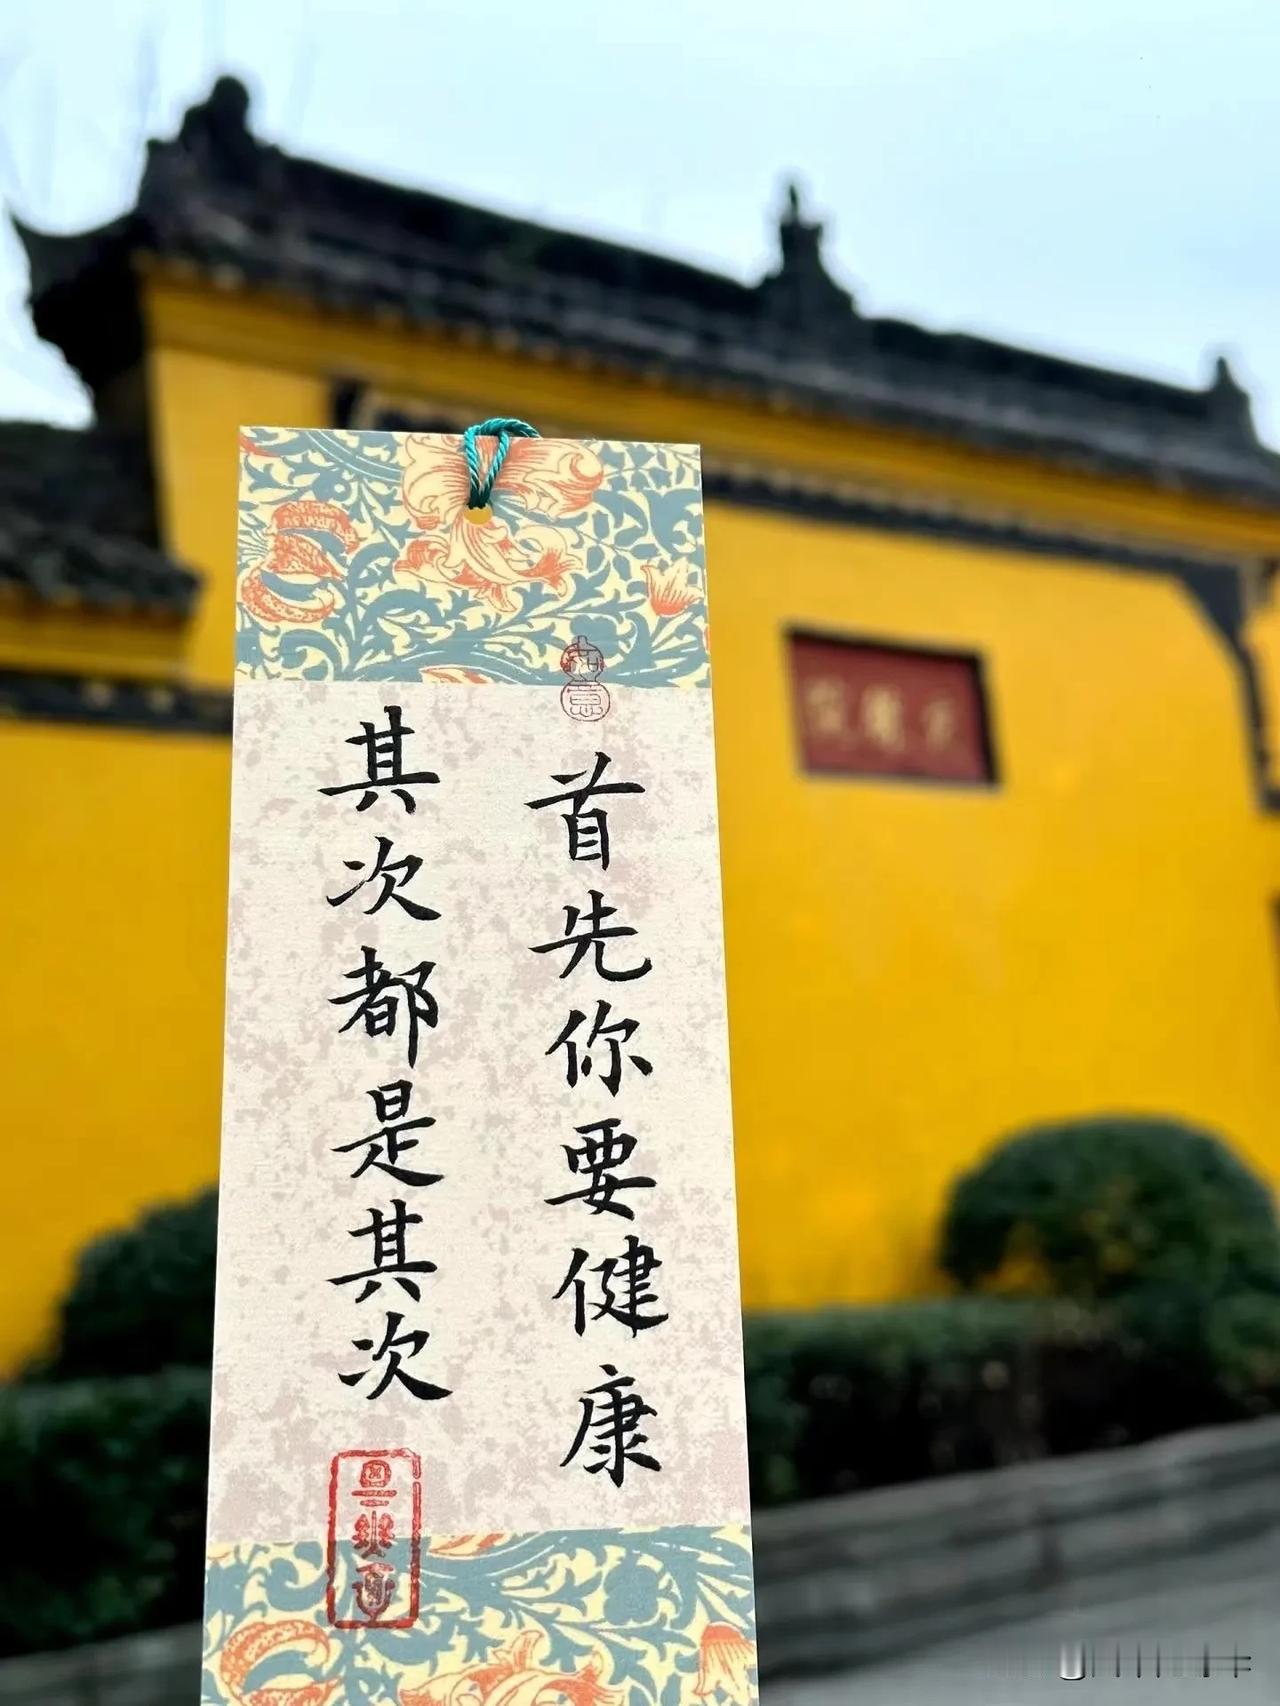 如意
首先你要健康
其次都是其次